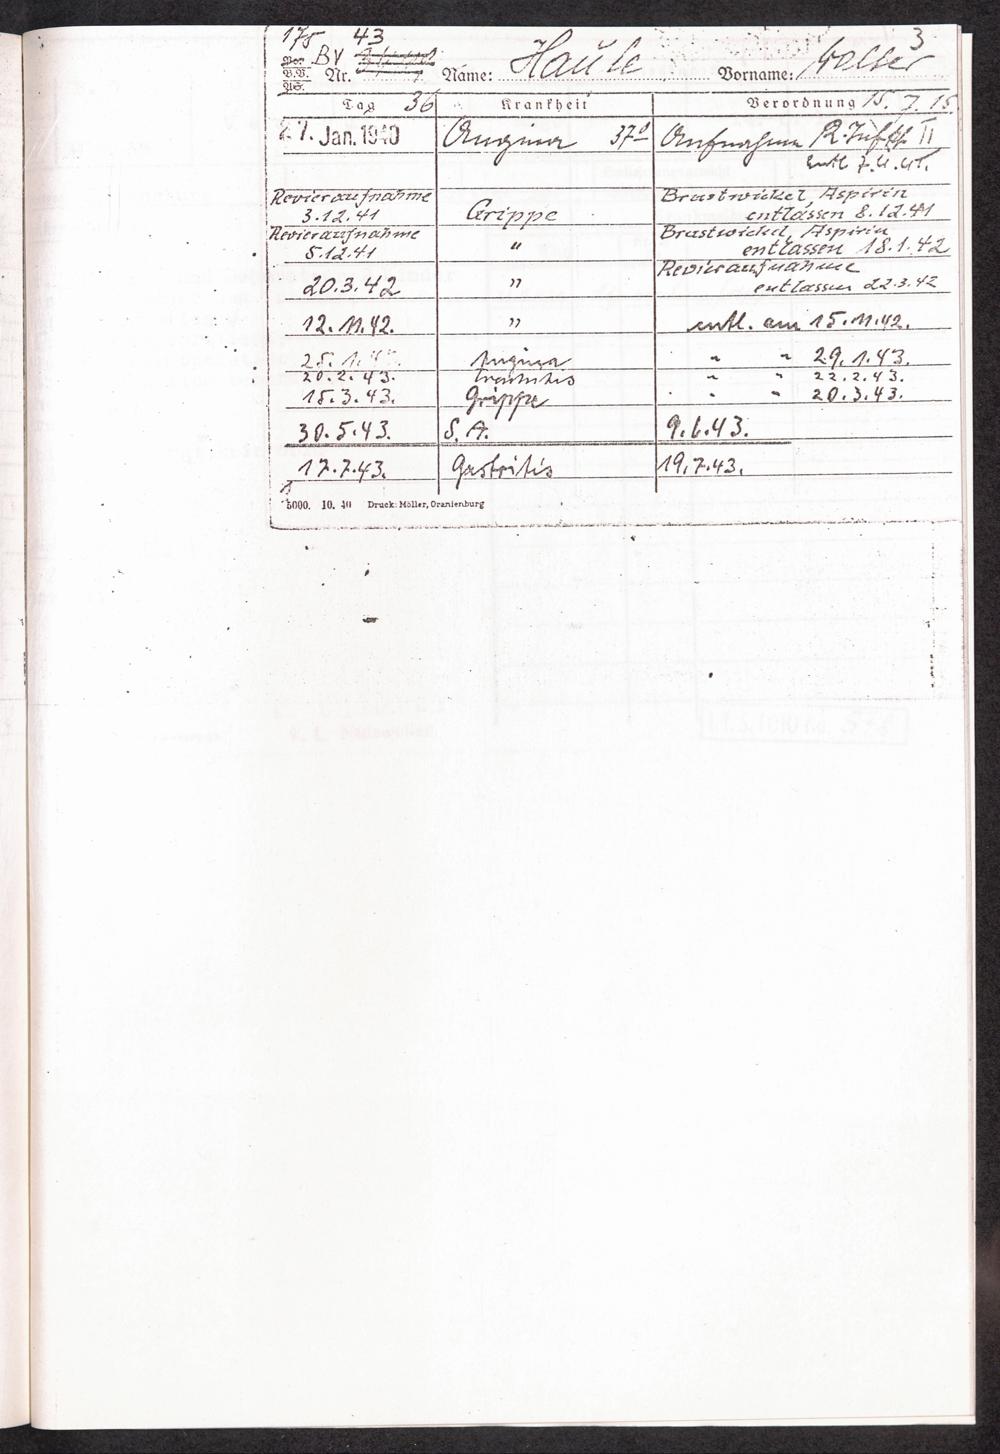 175 43 3
BV
B.V. Nr. Name: Haule Vorname: Walter
Tag 36 Krankheit Verordnung 15. 7. 15.
27. Jan. 1940 Angina 37⁰ Aufnahme II
entl 7.
Revieraufnahme Brustwickel, Aspirin
3.12.41 Grippe entlassen 8.12.41
Revieraufnahme Brustwickel, Aspirin
5.12.41 " entlassen 18.1.42
Revieraufnahme
20.3.42 " entlassen 22.3.42
12.11.42. " entl. am 15.11.42.
25.1. Angina " " 29.1.43.
20.2.43. " " 22.2.43.
15.3.43. Grippe " " 20.3.43.
30.5.43. S.A. 9.6.43.
17.7.43. Gastritis 19.7.43.
5000. 10. 40 Druck: Möller, Oranienburg